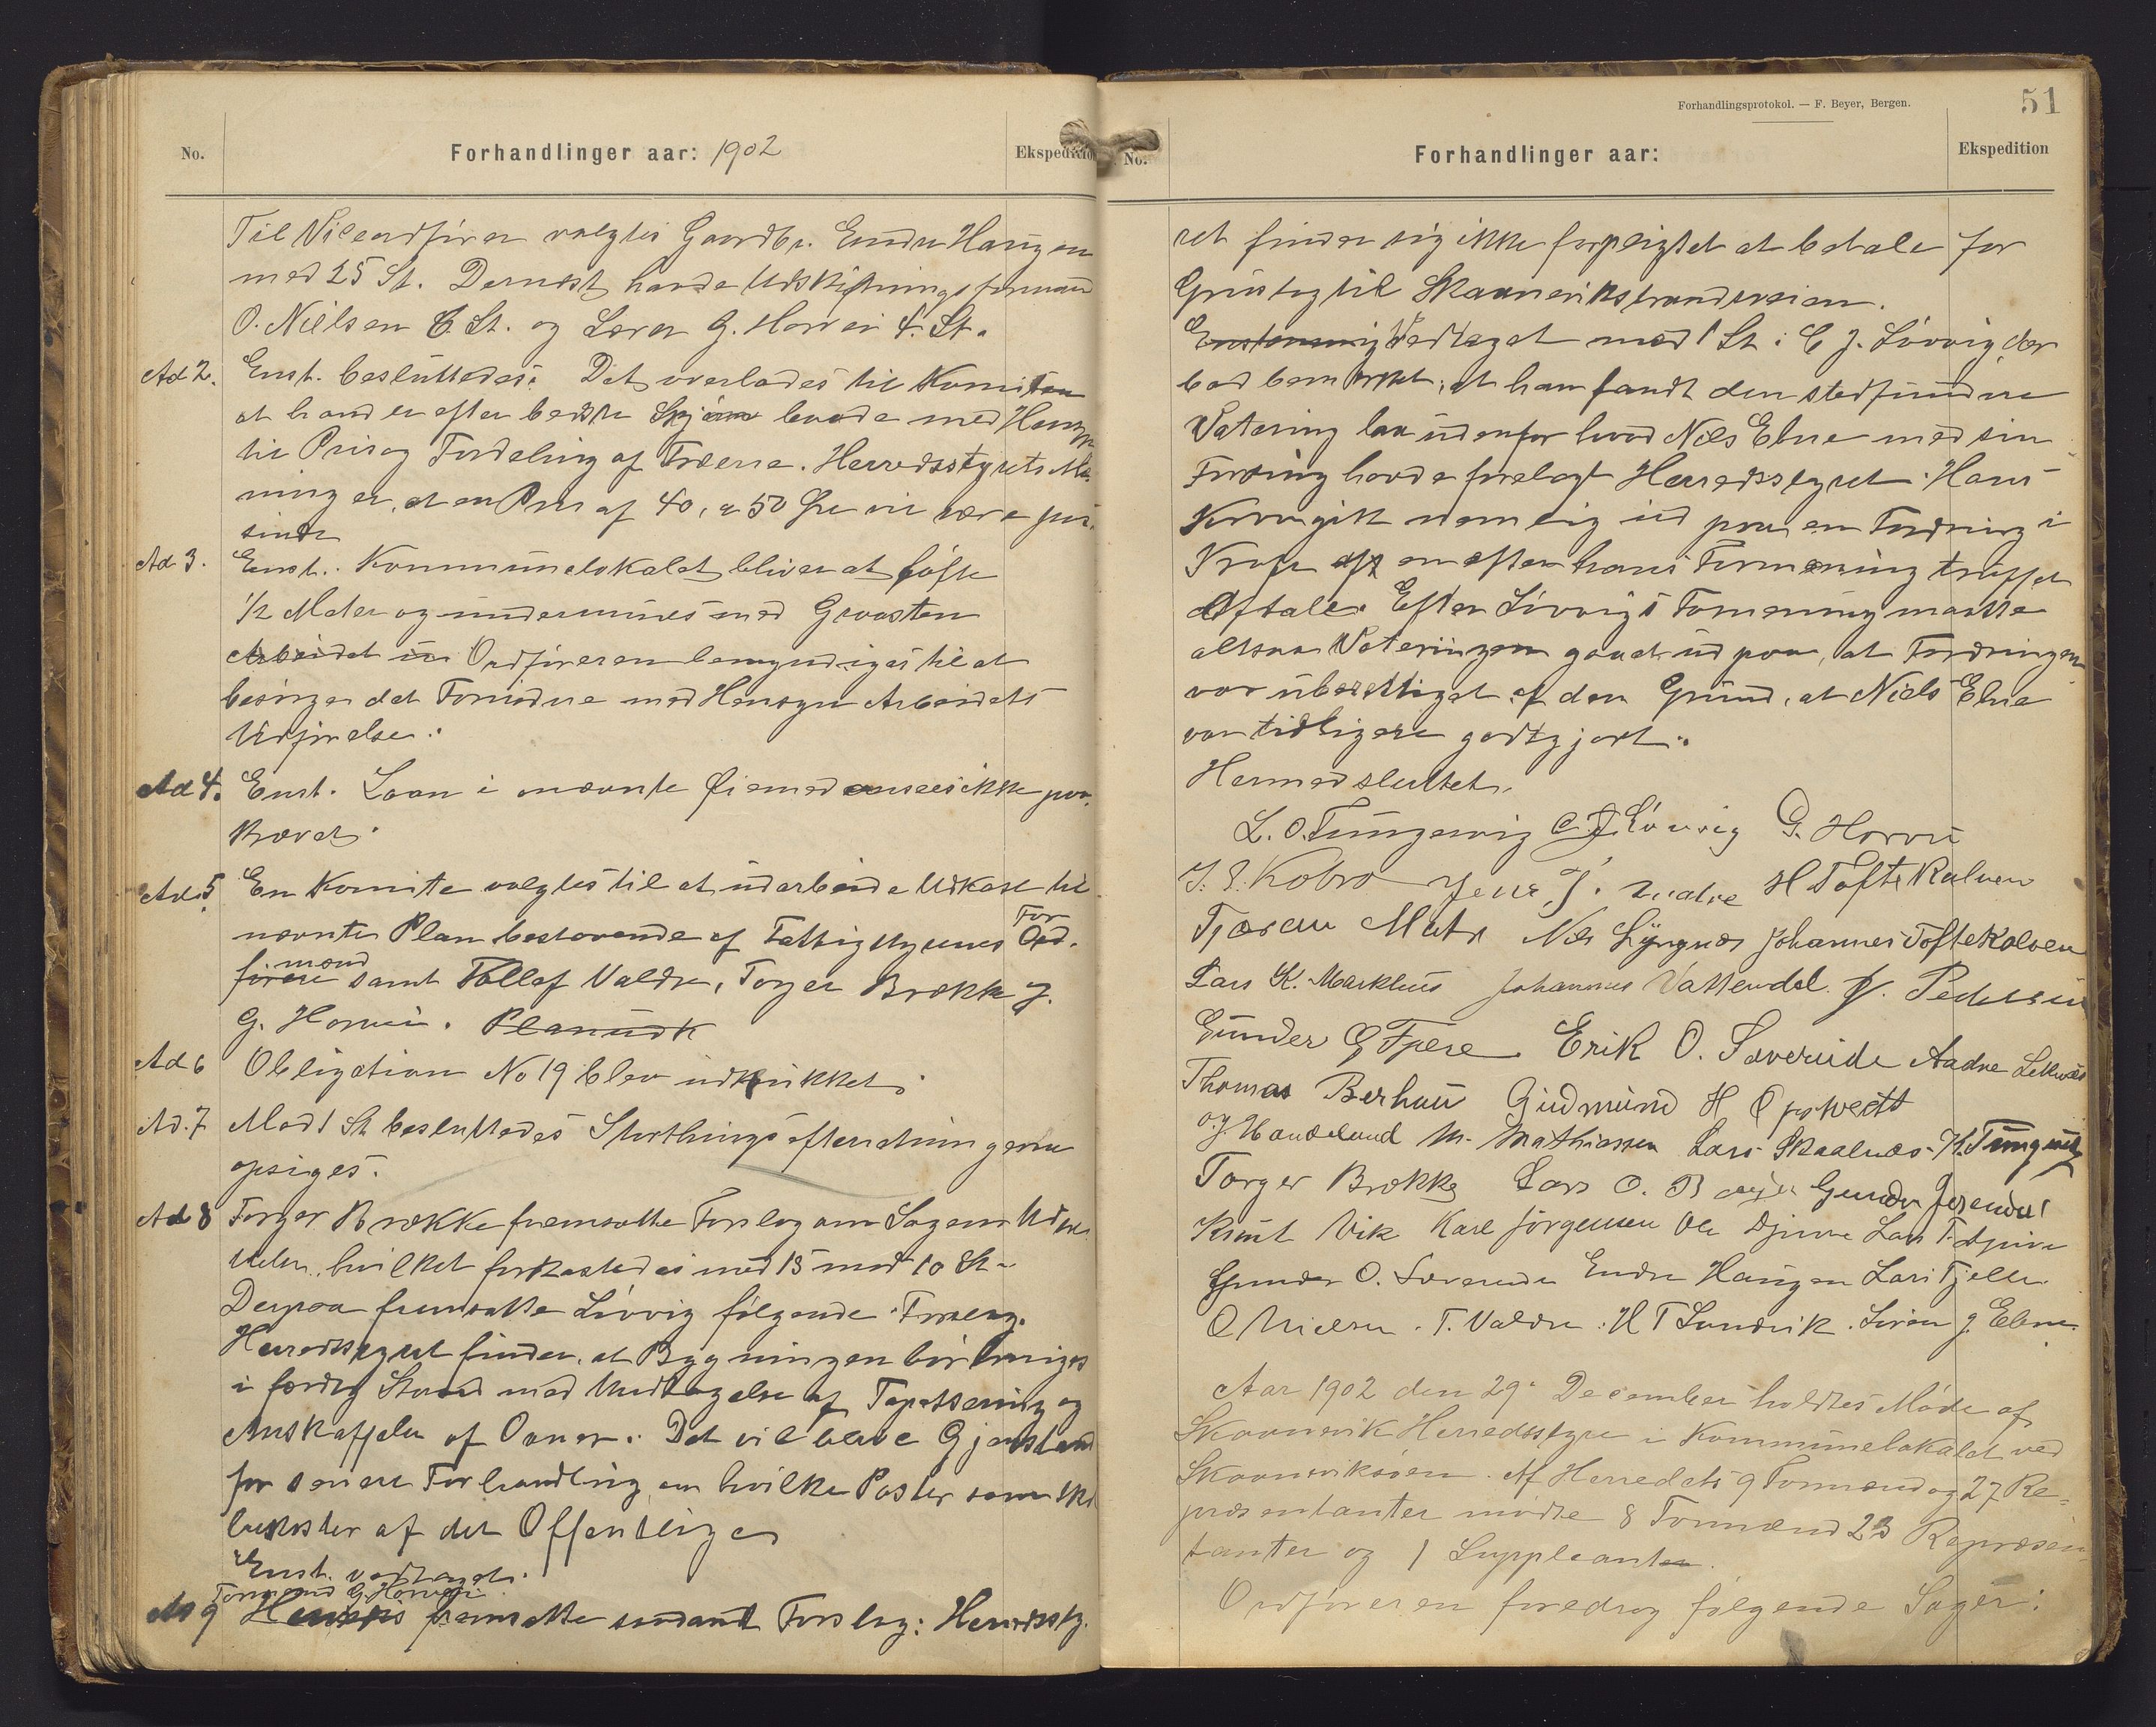 No.
Forhandlinger aar: 1902
Ekspeditio
Til Viceordfører valgtes Gaardbr. Endre Haugen
med 25 St. Dernæst havde Udskiftningsformand
O. Nielsen 6 St. og Lærer G. Horvei 4 St.
Ad 2. Enst. besluttedes: Det overlades til Komiteen
at handle efter bedste Skjøn baade med Hensyn
til Pris og Fordeling af Træerne. Herredsstyrets Me-
ning er, at en Pris af 40 a 50 Øre vil være pas-
sende
Ad 3. Enst.: Kommunelokalet bliver at løfte
1/2 Meter og undermures med Graasten
Arbeidet Ordføreren bemyndiges til at
besørge det Fornødne med Hensyn Arbeidets
Udførelse.
Ad 4. Enst. Laan i nævnte Øiemed ansees ikke paa-
krævet.
Ad. 5. En Komite valgtes til at udarbeide Udkast til
nævnte Plan bestaaende af Fattigstyrenes For
Ord-
mænd
førere samt Tollef Valdre, Torger Brække J.
G. Horvei. Planudk
Ad 6 Obligation No 19 blev udtrukket.
Ad. 7 Mod 1 St. besluttedes Storthingsefterretningerne
opsiges.
Ad 8 Torger Brække fremsatte Forslag om Sagens Udsæt-
telse, hvilket forkastedes med 15 mod 10 St.
Derpaa fremsatte Løvvig følgende Forslag.
Herredsstyret finder, at Bygningen bør bringes
i færdig Stand med Undtagelse af Tapetsering og
Anskaffelse af Ovner. Det vil blive Gjenstand
for senere Forhandling om hvilke Poster som skal
bekostes af det Offentlige
Enst. vedtaget.
Formand G. Horvei
Ad 9 fremsatte saadant Forslag: Herredssty-
Forhandlingsprotokol. — F. Beyer, Bergen.
51
No.
Forhandlinger aar:
Ekspedition
ret finder sig ikke forpligtet at betale for
Grustag til Skaaneviksstrandveien.
Enstemmig Vedtaget mod 1 St.: C J. Løvvig der
bad bemærket, at han fandt den stedfundne
Votering laa udenfor hvad Niels Ebne med sin
Fordring havde forelagt Herredsstyret. Hans
Krav gik nemlig ud paa en Fordring i
Kraft af en efter hans Formening truffet
Aftale. Efter Løvvigs Formening maatte
altsaa Voteringen gaaet ud paa, at Fordringen
var uberettiget af den Grund, at Niels Ebne
var tidligere godtgjort.
Hermed sluttet.
L. O. Tungesvig C. J. Løvvig G. Horvei
J. E. Kobro Jens J. H Toftekalven
Tjæran Matre Nils Lyngnæs Johannes Toftekalven
Lars K. Markhus Johannes Vattendal. Pedersen
Gunder G Fjære Erik O. Sævereide Aadne Leknæs
Thomas Berhau Gudmund H Opstvedt
O. J. Haaheland M. Mathiassen Lars Skaalnæs. K. Tungesvig
Torger Brække Lars O. B Gunder Jesendal
Knut Vik Karl Jørgensen Ole Djuve Lars T. Djuve
Gunder O. Sævereide Endre Haugen Lars Fjelle
O Nielsen. T. Valdre. H T Sundvik. Søren J. Ebne.
Aar 1902 den 29. December holdtes Møde af
Skaanevik Herredsstyre i Kommunelokalet ved
Skaaneviksøen. Af Herredets 9 Formænd og 27 Re-
præsentanter mødte 8 Formænd 23 Repræsen-
tanter og 1 Suppleanter.
Ordføreren foredrog følgende Sager: